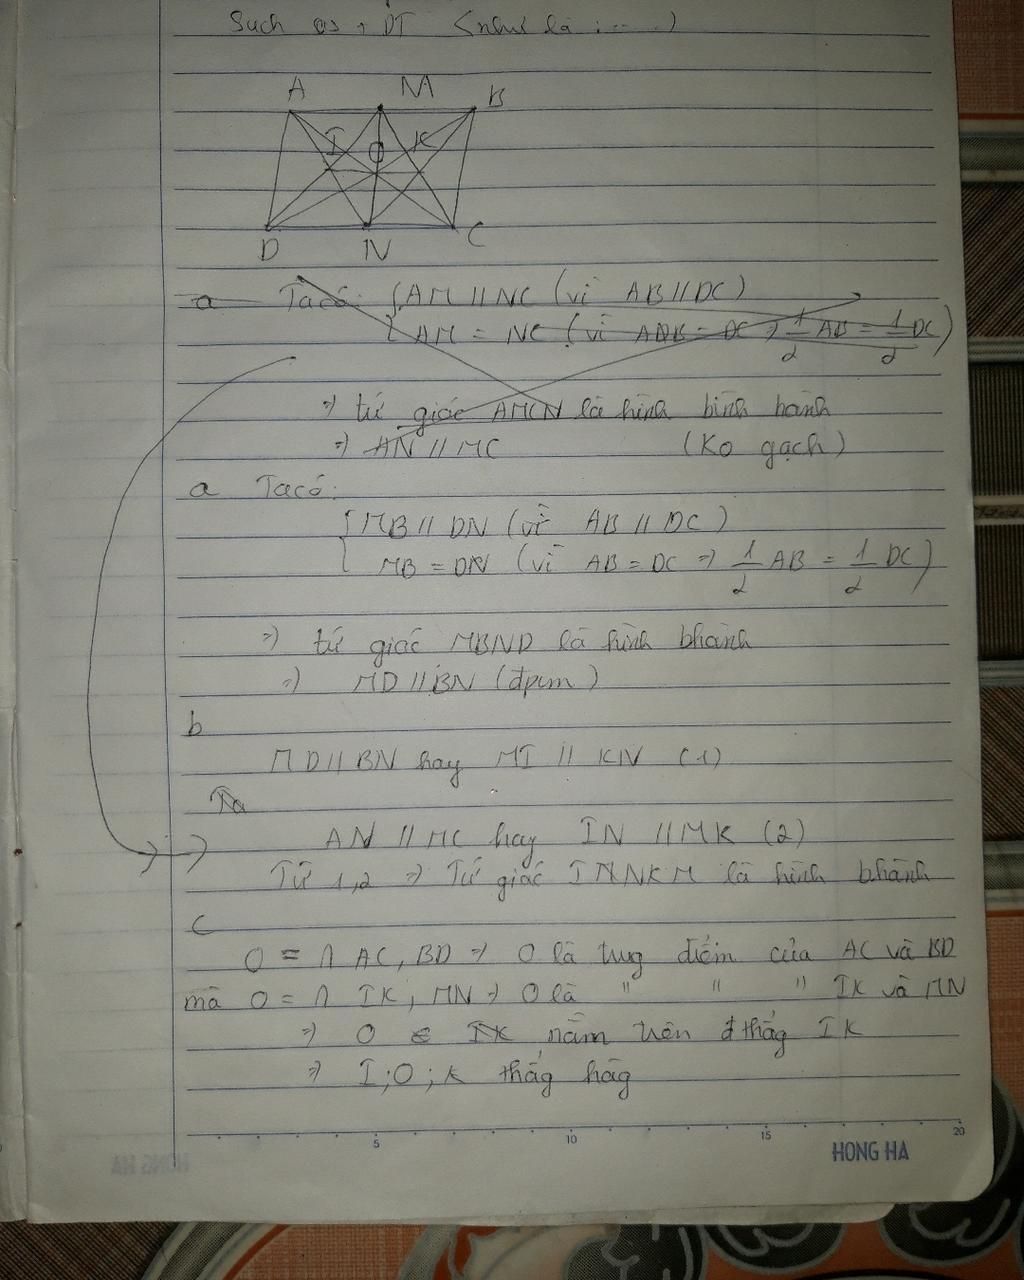 Such as + DT (như là : ....)
A M B
I O K
D N C
a Ta có: { AM // NC (vì AB // DC)
AM = NC (vì AB = DC => 1/2 AB = 1/2 DC)
=> tứ giác AMCN là hình bình hành
=> AN // MC (Ko gạch)
a Ta có:
{ MB // DN (vì AB // DC)
MB = DN (vì AB = DC => 1/2 AB = 1/2 DC)
=> tứ giác MBND là hình bhành
=> MD // BN (đpcm)
b
MD // BN hay MI // KN (1)
Ta
AN // MC hay IN // MK (2)
Từ 1,2 => Tứ giác INKM là hình bhành
c
O = ∩ AC, BD => O là tug điểm của AC và BD
mà O = ∩ IK, MN => O là " " " IK và MN
=> O nằm trên đ thẳg IK
=> I; O; K thẳg hàg
5 10 15 20
HONG HA